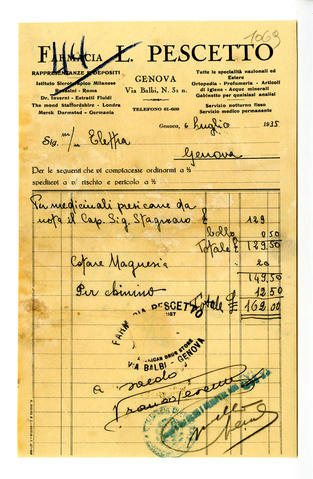 1069
FARMACIA L. PESCETTO
RAPPRESENTANZE E DEPOSITI
Istituto Sieroterapico Milanese
Serafini - Roma
Dr. Inverni - Estratti Fluidi
The mond Staffordshire - Londra
Merck Darmsted - Germania
GENOVA
Via Balbi, N. 51 n.
TELEFONO 61-609
Tutte le specialità nazionali ed
Estere
Ortopedia - Profumeria - Articoli
di Igiene - Acque minerali
Gabinetto per qualsiasi analisi
Servizio notturno fisso
Servizio medico permanente
Genova, 6 Luglio 1935
Sig. m/n Elettra
Genova
Per le seguenti che vi compiacesse ordinarmi a ½
speditevi a p/ rischio e pericolo a ½
Per medicinali presi come da
nota il Cap. Sig. £ 129
bollo 0,50
Totale £ 129,50
Magnesia 20
149,50
Per chinino 12,50
Totale £ 162,00
FARMACIA PESCETTO
AMERICAN DRUG STORE
VIA BALBI - GENOVA
a saldo